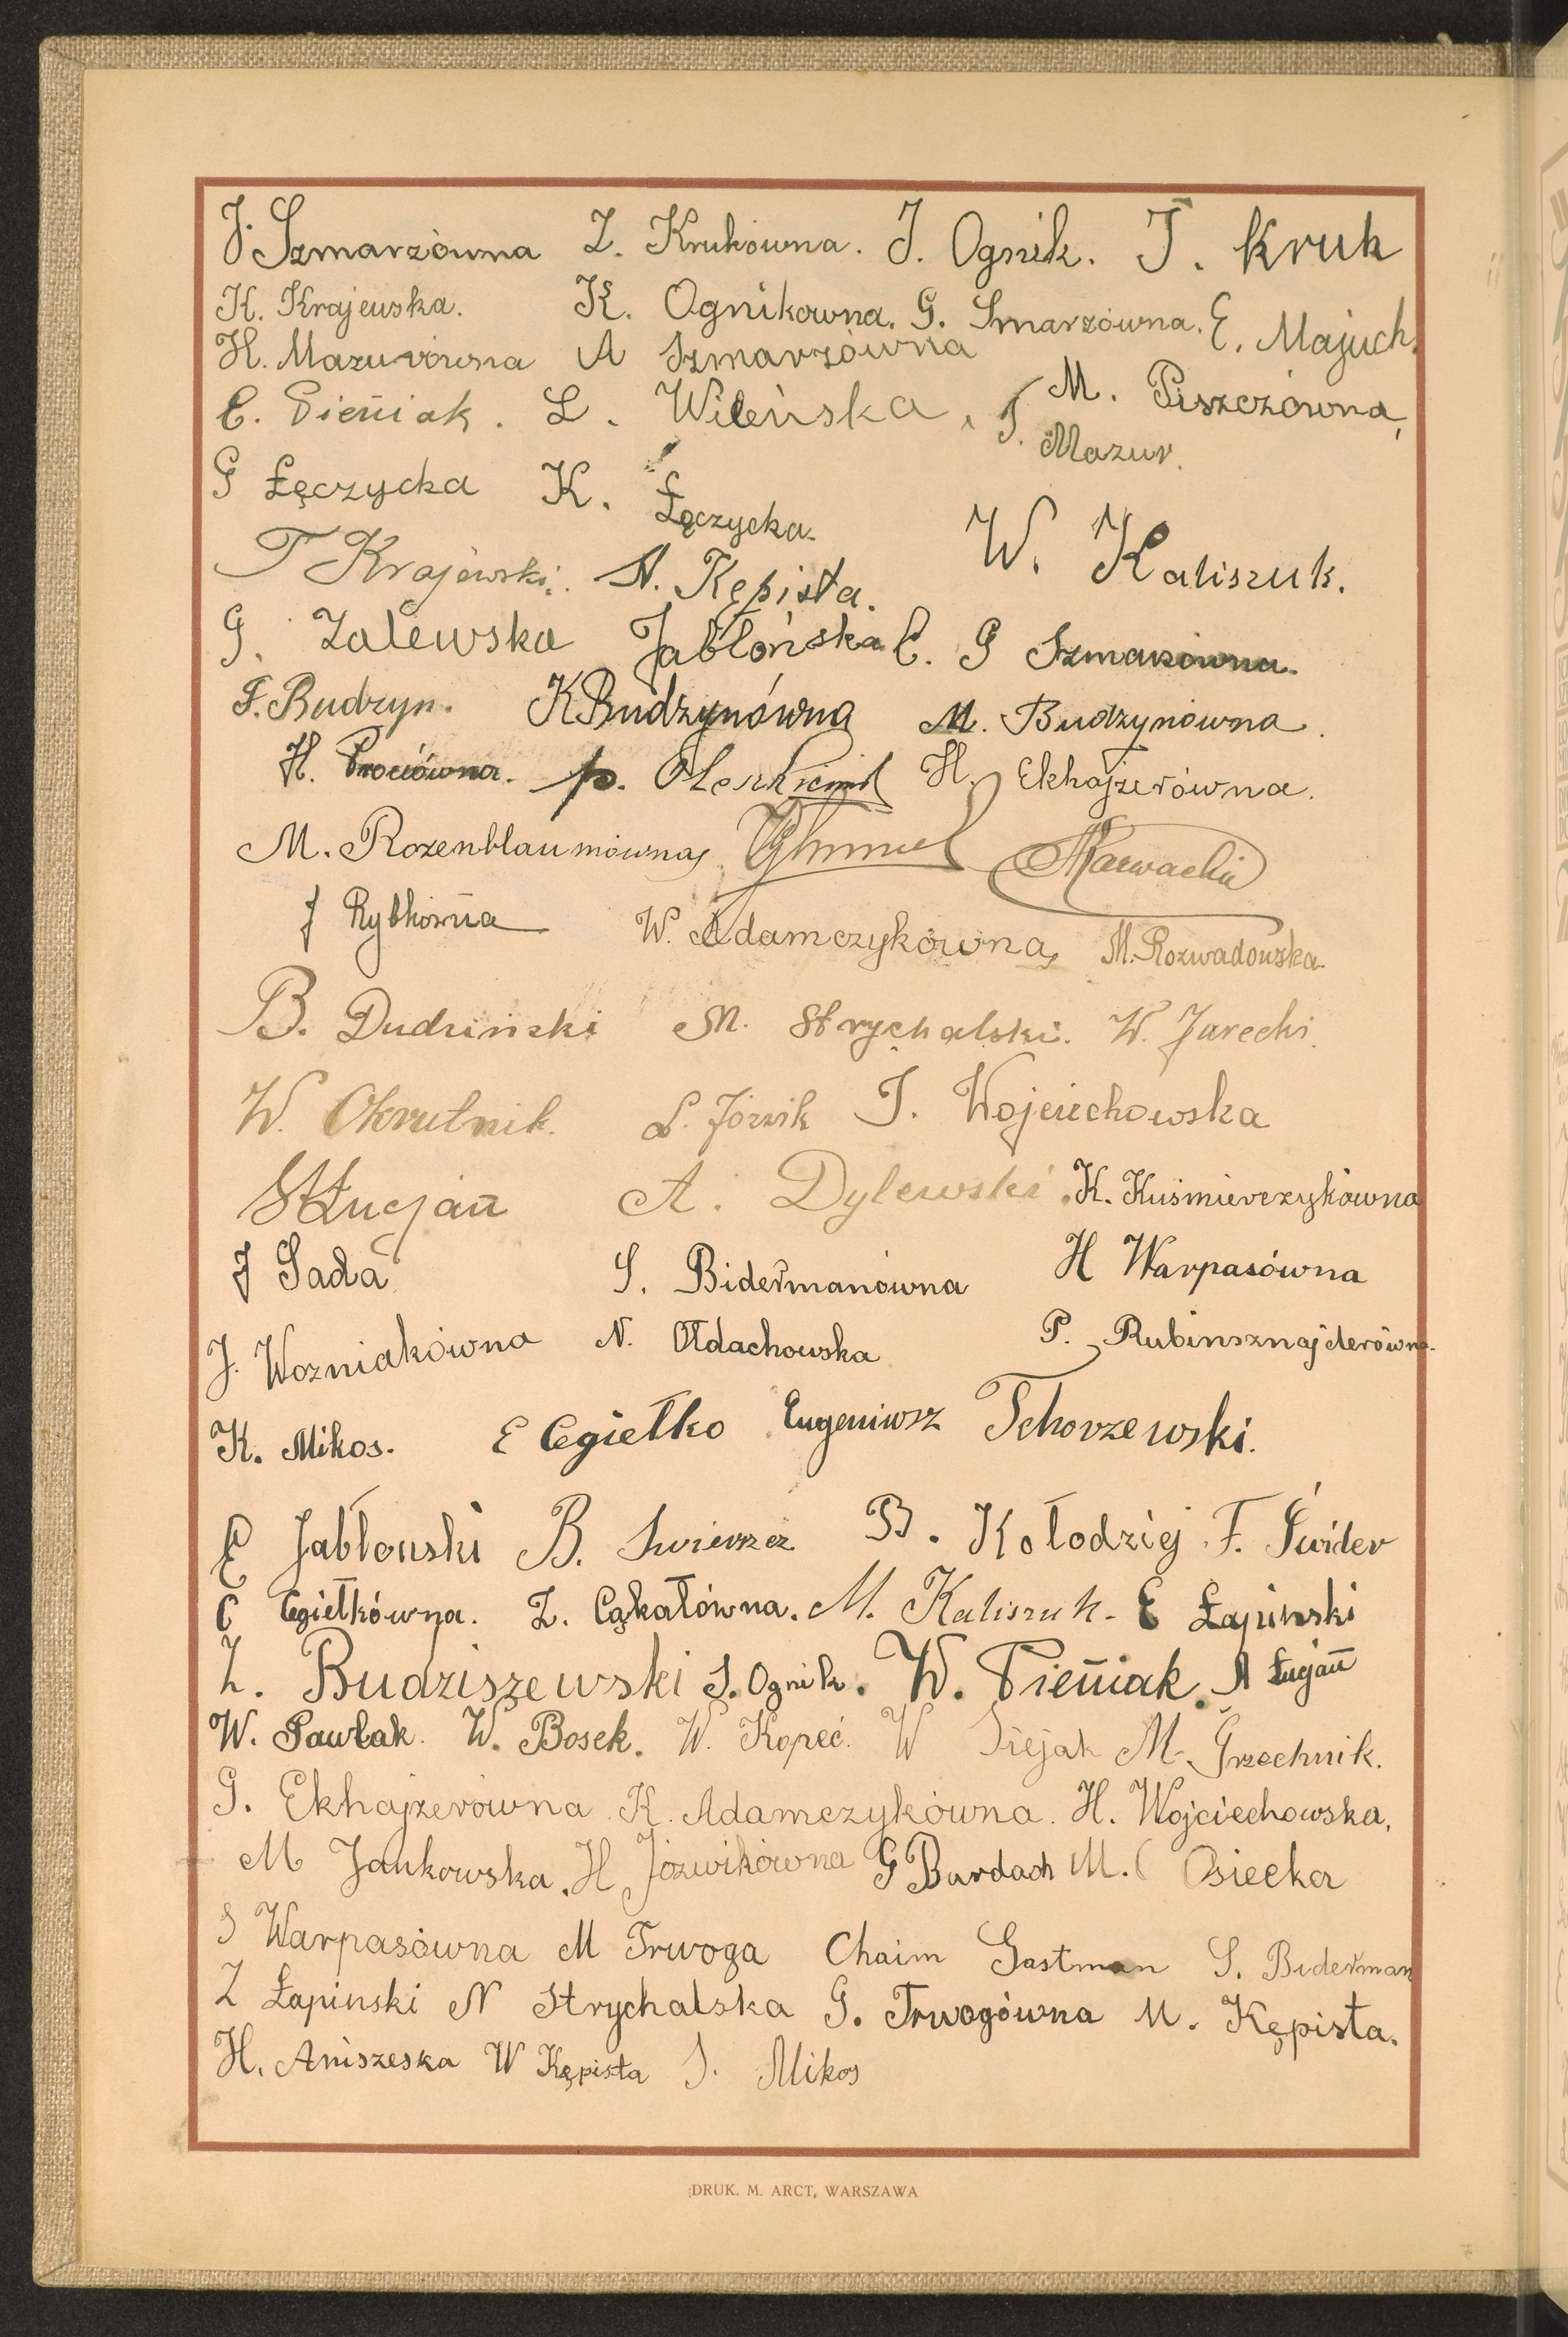 J. Szmarzówna Z. Krukówna. J. Ognik. T. Kruk
K. Krajewska. K. Ognikowna. G. Smarzówna. E. Majuch.
H. Mazurówna A Szmarzówna
E. Pieniak. L. Wileńska. T. Mazur. M. Piszczówna,
G Łęczycka K. Łęczycka.
T Krajewski. A. Kępista. W. Kaliszuk.
G. Zalewska Jabłońska E. G Szmarówna.
F. Budzyn. K Budzynówna M. Budzynówna.
H. Prociówna. H. Ekhajzerówna.
M. Rozenblaumówna
J Rybkówna W. Adamczykówna, M. Rozwadowska.
B. Dudziński M. Strychalski. W. Jarecki.
W. Okrutnik. L. Józwik J. Wojciechowska
S Łucjan A. Dylewski. K. Kuśmierczykówna
J Sada S. Bidermanówna H Warpasówna
J. Wozniakówna N. Ołdachowska P. Rubinsznajderówna.
K. Mikos. E Cegiełko Eugeniusz Tchorzewski.
E Jabłouski B. Swierszcz B. Kołodziej F. Świder
C Cegiełkówna. Z. Cąkałówna. M. Kaliszuk. E Łapinski
Z. Budziszewski S. Ognik. W. Pieniak. A Łucjan
W. Pawlak. W. Bosek. W. Kopeć. W Siejak M. Grzechnik.
G. Ekhajzerówna K. Adamczykówna. H. Wojciechowska,
M Jankowska. H Józwikówna G Bardach M. Osiecka
S Warpasówna M Trwoga Chaim Gastman S. Biderman
Z Łapinski N Strychalska G. Trwogówna M. Kępista.
H. Aniszeska W Kępista S. Mikos
DRUK. M. ARCT, WARSZAWA